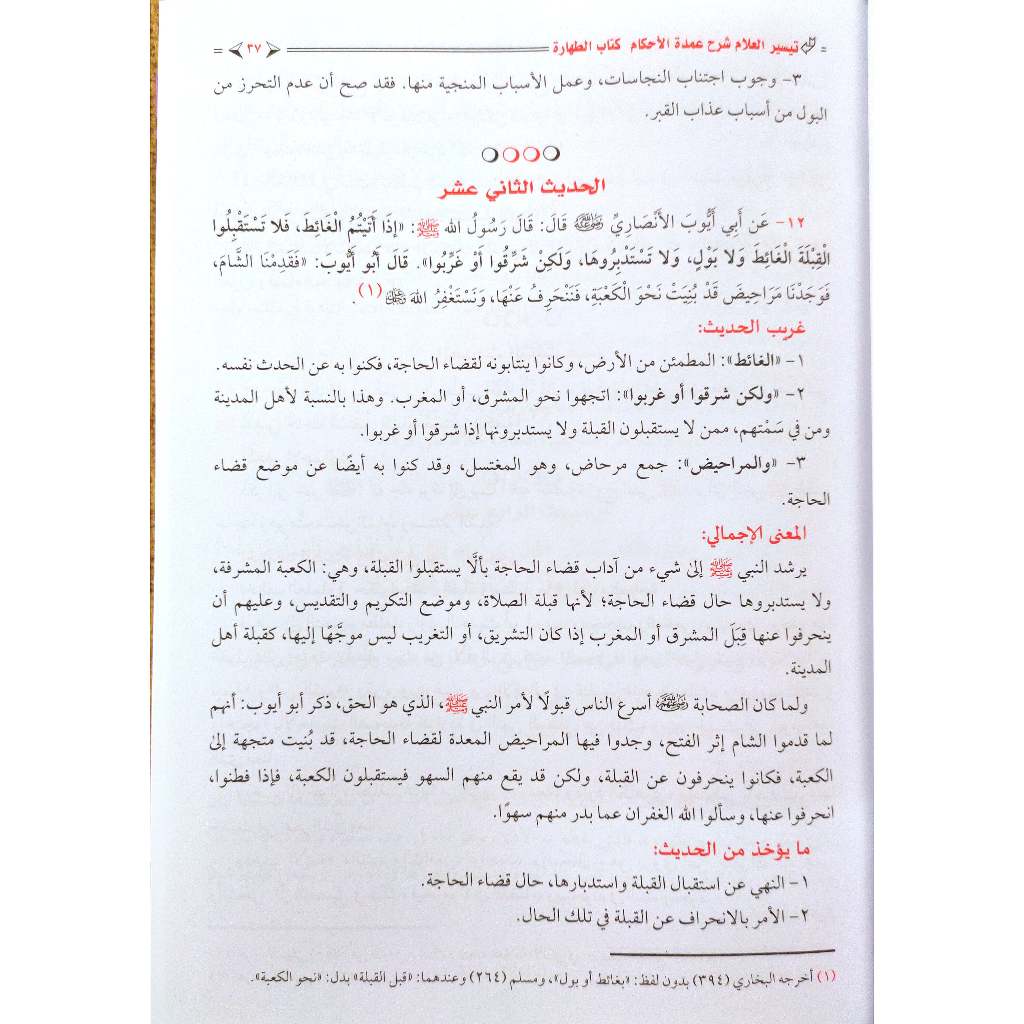 تيسير العلام شرح عمدة الأحكام كتاب الطهارة ٣٧
٣- وجوب اجتناب النجاسات، وعمل الأسباب المنجية منها. فقد صح أن عدم التحرز من
البول من أسباب عذاب القبر.
الحديث الثاني عشر
١٢- عَن أَبِي أَيُّوبَ الأَنْصَارِيِّ رضي الله عنه قَالَ: قَالَ رَسُولُ الله ﷺ: «إذَا أَتَيْتُمُ الْغَائِطَ، فَلا تَسْتَقْبِلُوا
الْقِبْلَةَ الْغَائِطَ وَلا بَوْلٍ، وَلا تَسْتَدْبِرُوهَا، وَلَكِنْ شَرِّقُوا أَوْ غَرِّبُوا». قَالَ أَبُو أَيُّوبَ: «فَقَدِمْنَا الشَّامَ،
فَوَجَدْنَا مَرَاحِيضَ قَدْ بُنِيَتْ نَحْوَ الْكَعْبَةِ، فَنَنْحَرِفُ عَنْهَا، وَنَسْتَغْفِرُ اللهَ عز وجل(١).
غريب الحديث:
١- «الغائط»: المطمئن من الأرض، وكانوا ينتابونه لقضاء الحاجة، فكنوا به عن الحدث نفسه.
٢- «ولكن شرقوا أو غربوا»: اتجهوا نحو المشرق، أو المغرب. وهذا بالنسبة لأهل المدينة
ومن في سَمْتهم، ممن لا يستقبلون القبلة ولا يستدبرونها إذا شرقوا أو غربوا.
٣- «والمراحيض»: جمع مرحاض، وهو المغتسل، وقد كنوا به أيضًا عن موضع قضاء
الحاجة.
المعنى الإجمالي:
يرشد النبي ﷺ إلىٰ شيء من آداب قضاء الحاجة بألَّا يستقبلوا القبلة، وهي: الكعبة المشرفة،
ولا يستدبروها حال قضاء الحاجة؛ لأنها قبلة الصلاة، وموضع التكريم والتقديس، وعليهم أن
ينحرفوا عنها قِبَلَ المشرق أو المغرب إذا كان التشريق، أو التغريب ليس موجَّهًا إليها، كقبلة أهل
المدينة.
ولما كان الصحابة رضي الله عنهم أسرع الناس قبولًا لأمر النبي ﷺ، الذي هو الحق، ذكر أبو أيوب: أنهم
لما قدموا الشام إثر الفتح، وجدوا فيها المراحيض المعدة لقضاء الحاجة، قد بُنيت متجهة إلىٰ
الكعبة، فكانوا ينحرفون عن القبلة، ولكن قد يقع منهم السهو فيستقبلون الكعبة، فإذا فطنوا،
انحرفوا عنها، وسألوا الله الغفران عما بدر منهم سهوًا.
ما يؤخذ من الحديث:
١- النهي عن استقبال القبلة واستدبارها، حال قضاء الحاجة.
٢- الأمر بالانحراف عن القبلة في تلك الحال.
(١) أخرجه البخاري (٣٩٤) بدون لفظ: «بغائط أو بول»، ومسلم (٢٦٤) وعندهما: «قبل القبلة» بدل: «نحو الكعبة».